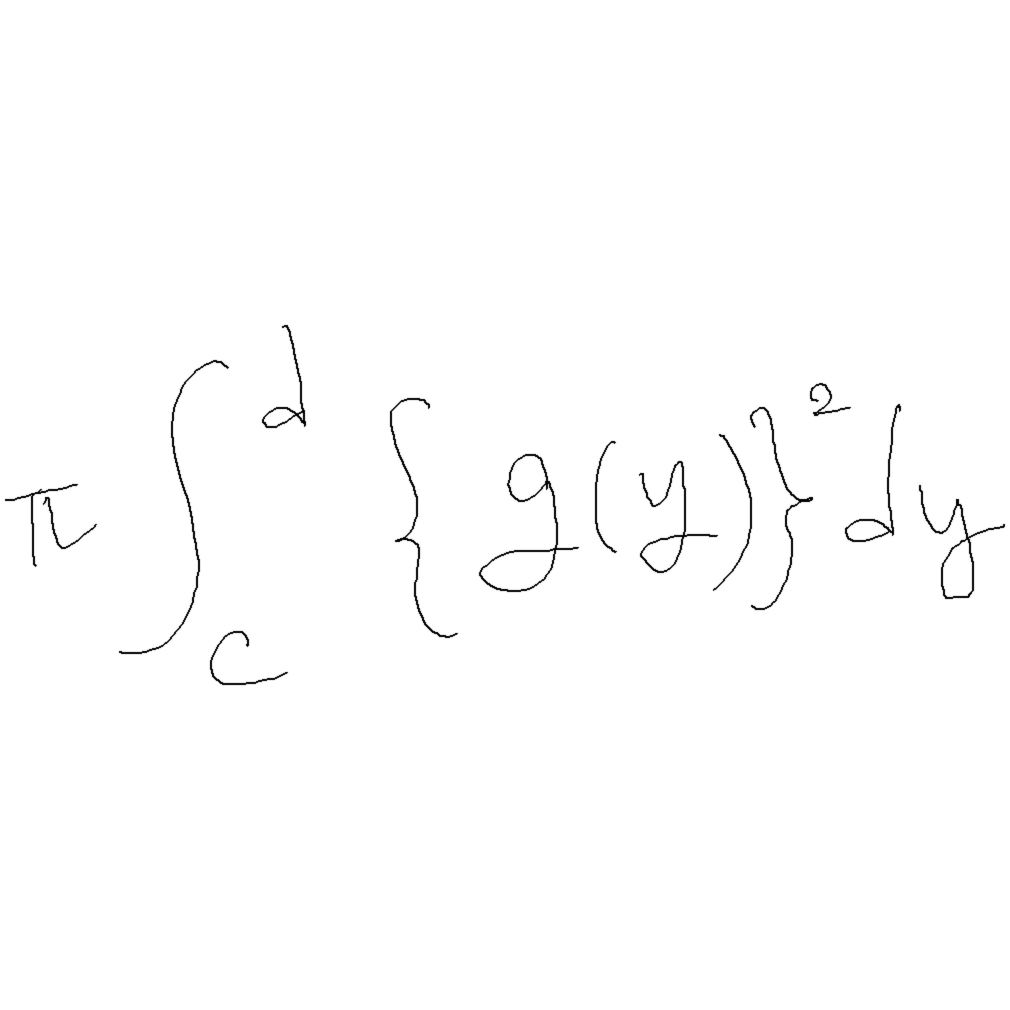 $\pi \int_{c}^{d} \{g(y)\}^2 dy$